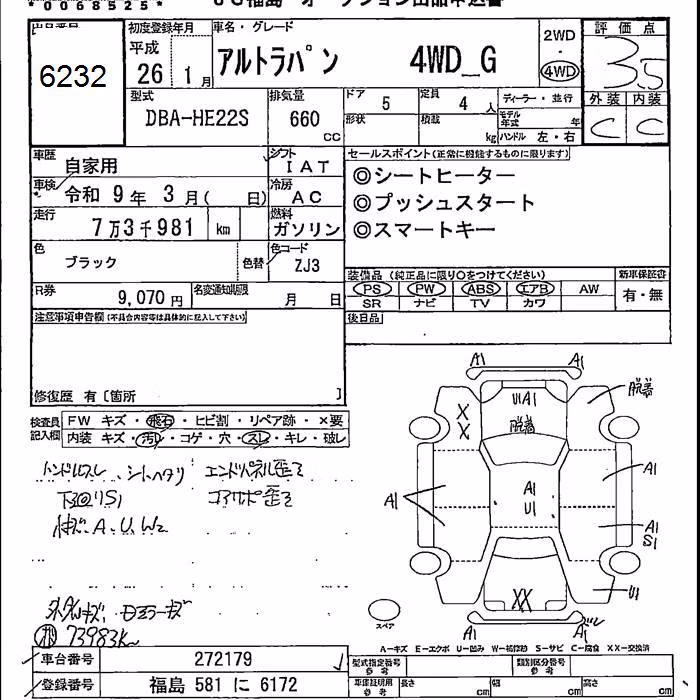 *0068525*
出品番号 6232
初度登録年月 平成 26 1月
車名・グレード アルトラパン 4WD_G
2WD ・ 4WD
評価点 3.5
外装 C 内装 C
型式 DBA-HE22S
排気量 660 CC
ドア 5 定員 4人
ディーラー・並行
形状 積載 kg
モデル年式 年
ハンドル 左・右
車歴 自家用
シフト IAT
セールスポイント(正常に機能するものに限ります)
車検 令和 9年 3月( 日)
冷房 AC
◎シートヒーター
走行 7万3千981 km
燃料 ガソリン
◎プッシュスタート
◎スマートキー
色 ブラック 色替
色コード ZJ3
装備品(純正品に限り○をつけてください)
新車保証書 有・無
PS PW ABS エアB AW
SR ナビ TV カワ
R券 9,070円
名変通知期限 月 日
後日品
注意事項申告欄(不具合内容等は具体的に記入して下さい)
修復歴 有 [箇所 ]
検査員記入欄
FW キズ・飛石・ヒビ割・リペア跡・×要
内装 キズ・汚レ・コゲ・穴・スレ・キレ・破レ
ハンドルスレ、シートヘタリ
エンドパネル歪ミ
下回リS1
コアサポ歪ミ
A1 A1
UA1
脱着
脱着
XX
A1
A1
U1
A1
A1
S1
XX
U1
A1 A1
スペア
73983K
A=キズ E=エクボ U=凹み W=補修跡 S=サビ C=腐食 XX=交換済
車台番号 272179
型式指定番号 参考
類別区分番号 参考
登録番号 福島 581 に 6172
車庫証明用 参考
長さ cm 幅 cm 高さ cm